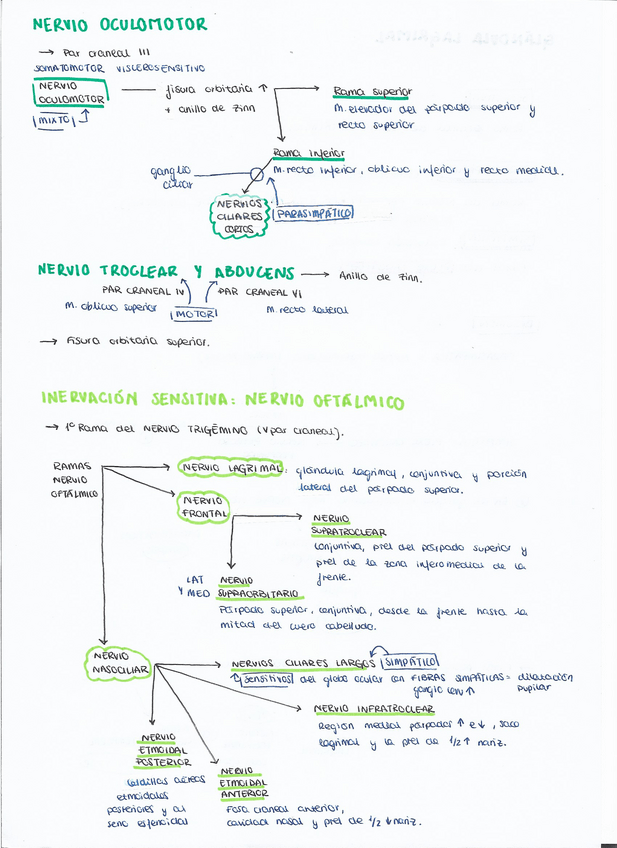 NERVIO OCULOMOTOR
→ Par craneal III
SOMATOMOTOR VISCEROSENSITIVO
NERVIO
OCULOMOTOR
MIXTO
fisura orbitaria ↑
+ anillo de Zinn
Rama superior
M. elevador del párpado superior y
recto superior
Rama inferior
M. recto inferior, oblicuo inferior y recto medial.
ganglio
ciliar
NERVIOS
CILIARES
CORTOS
PARASIMPÁTICO
NERVIO TROCLEAR Y ABDUCENS → Anillo de Zinn.
PAR CRANEAL IV
PAR CRANEAL VI
M. oblicuo superior
MOTOR
M. recto lateral
→ Fisura orbitaria superior.
INERVACIÓN SENSITIVA: NERVIO OFTÁLMICO
→ 1º Rama del NERVIO TRIGÉMINO (V par craneal).
RAMAS
NERVIO
OFTÁLMICO
NERVIO LAGRIMAL: glándula lagrimal, conjuntiva y porción
lateral del párpado superior.
NERVIO
FRONTAL
NERVIO
SUPRATROCLEAR
Conjuntiva, piel del párpado superior y
piel de la zona inferomedial de la
frente.
LAT
Y MED
NERVIO
SUPRAORBITARIO
Párpado superior, conjuntiva, desde la frente hasta la
mitad del cuero cabelludo.
NERVIO
NASOCILIAR
NERVIOS CILIARES LARGOS SIMPÁTICO
Sensitivos del globo ocular con FIBRAS SIMPÁTICAS = dilatación
pupilar
NERVIO INFRATROCLEAR
Región medial párpados ↑ e ↓, saco
lagrimal y la piel de 1/2 ↑ nariz.
NERVIO
ETMOIDAL
POSTERIOR
Celdillas aéreas
etmoidales
posteriores y al
seno esfenoidal
NERVIO
ETMOIDAL
ANTERIOR
Fosa craneal anterior,
cavidad nasal y piel de 1/2 ↓ nariz.